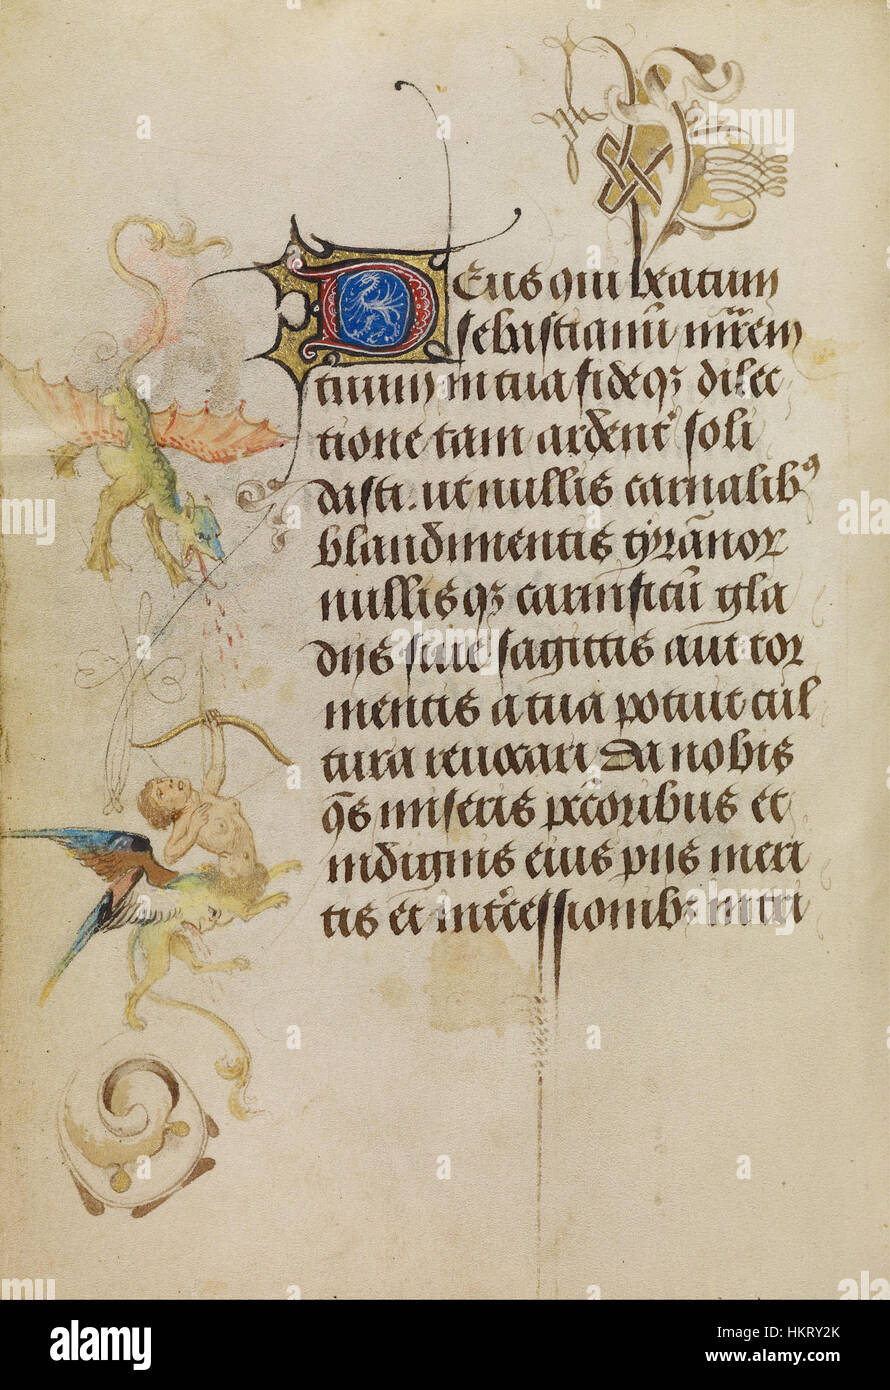 Deus qui beatum
sebastianū mr̄em
tuum in tua fide qȝ dilec
tione tam ardent' soli
dasti. ut nullis carnalibꝰ
blandimentis tyrānor
nullis qȝ carnificū gla
diis siue sagittis aut tor
mentis a tua potuit cul
tura reuocari Da nobis
q̄s miseris pc̄coribus et
indignis eius piis meri
tis et int'cessionibȝ
alamy
Image ID: HKRY2K
www.alamy.com